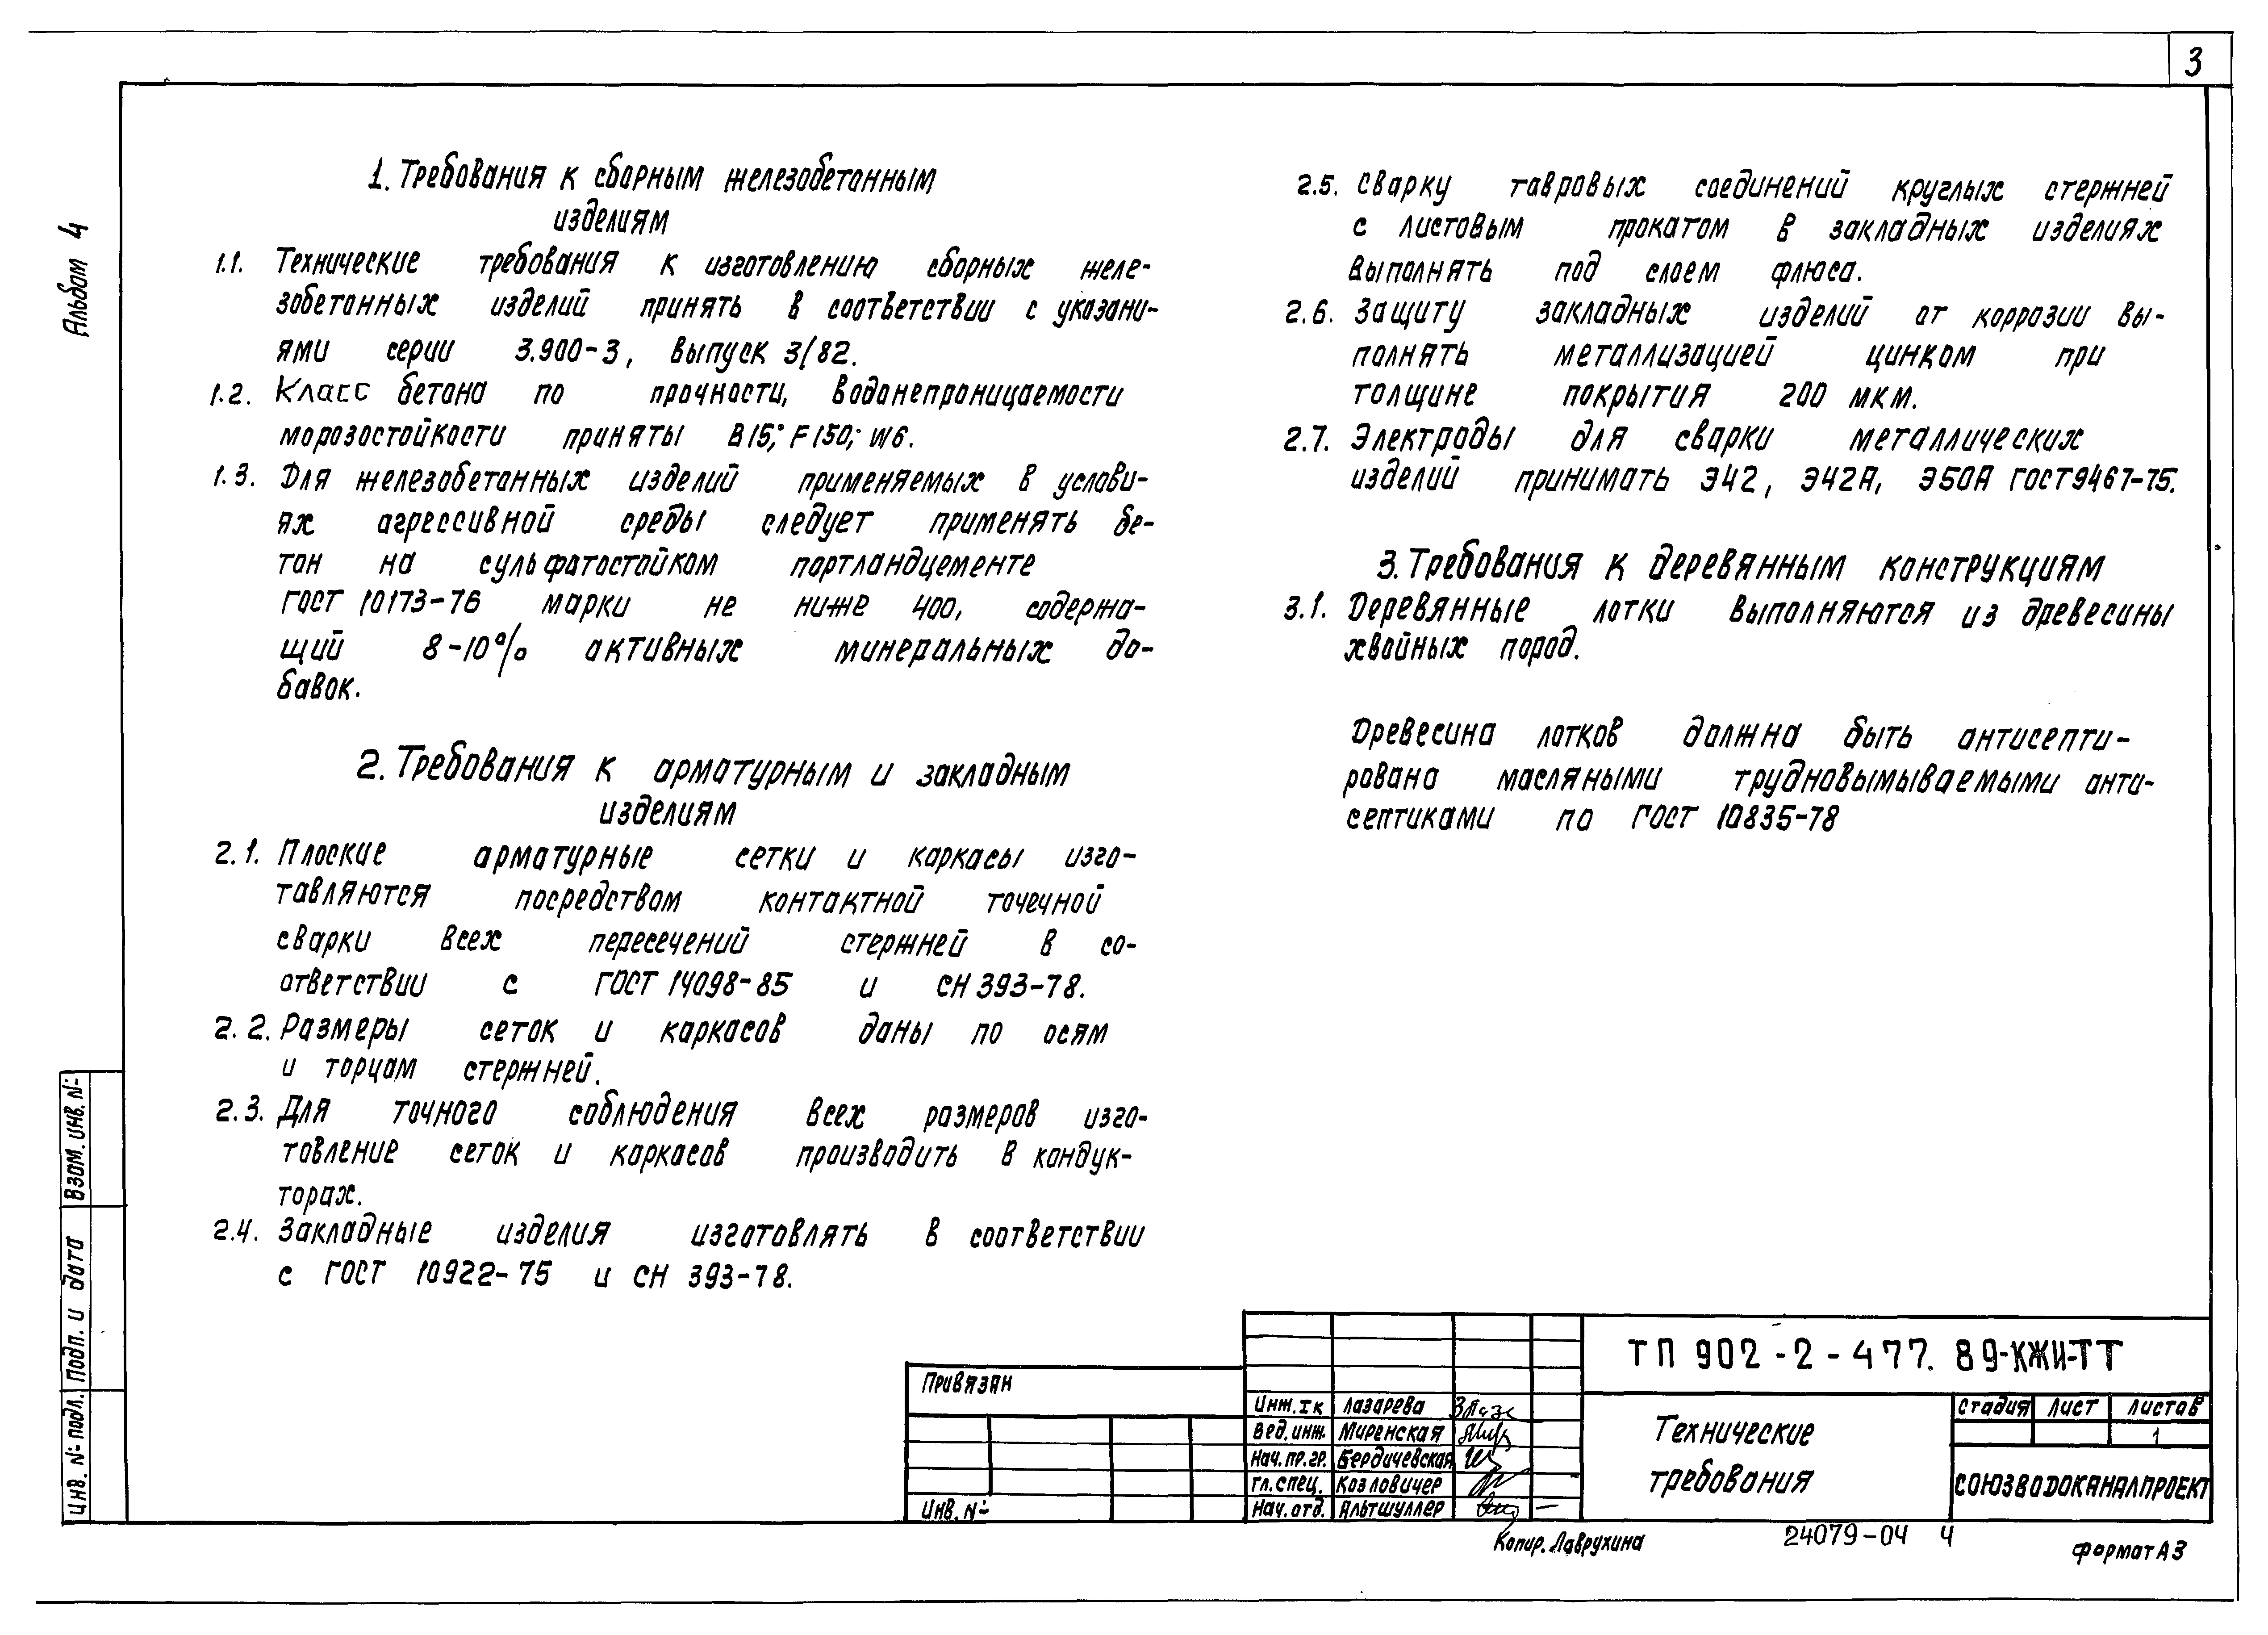 3
Альбом 4
1. Требования к сборным железобетонным
изделиям
1.1. Технические требования к изготовлению сборных желе-
зобетонных изделий принять в соответствии с указани-
ями серии 3.900-3, выпуск 3/82.
1.2. Класс бетона по прочности, водонепроницаемости
морозостойкости приняты В15; F150; W6.
1.3. Для железобетонных изделий применяемых в услови-
ях агрессивной среды следует применять бе-
тон на сульфатостойком портландцементе
ГОСТ 10173-76 марки не ниже 400, содержа-
щий 8-10% активных минеральных до-
бавок.
2. Требования к арматурным и закладным
изделиям
2.1. Плоские арматурные сетки и каркасы изго-
тавляются посредством контактной точечной
сварки всех пересечений стержней в со-
ответствии с ГОСТ 14098-85 и СН 393-78.
2.2. Размеры сеток и каркасов даны по осям
и торцам стержней.
2.3. Для точного соблюдения всех размеров изго-
товление сеток и каркасов производить в кондук-
торах.
2.4. Закладные изделия изготовлять в соответствии
с ГОСТ 10922-75 и СН 393-78.
2.5. Сварку тавровых соединений круглых стержней
с листовым прокатом в закладных изделиях
выполнять под слоем флюса.
2.6. Защиту закладных изделий от коррозии вы-
полнять металлизацией цинком при
толщине покрытия 200 мкм.
2.7. Электроды для сварки металлических
изделий принимать Э42, Э42А, Э50А ГОСТ 9467-75.
3. Требования к деревянным конструкциям
3.1. Деревянные лотки выполняются из древесины
хвойных пород.
Древесина лотков должна быть антисепти-
рована масляными трудновымываемыми анти-
септиками по ГОСТ 10835-78
Взам. инв. №
Подп. и дата
Инв. № подл.
Привязан
Инв. №
Инж. I к Лазарева
Вед. инж. Миренская
Нач. пр. гр. Бердичевская
Гл. спец. Козловичер
Нач. отд. Альтшуллер
ТП 902-2-477.89-КЖИ-ТТ
Технические
требования
Стадия Лист Листов
1
СОЮЗВОДОКАНАЛПРОЕКТ
Копир. Лаврухина
24079-04 4
Формат А3